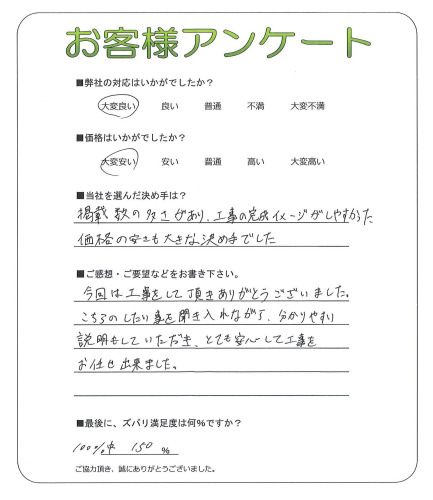 お客様アンケート
■弊社の対応はいかがでしたか？
大変良い 良い 普通 不満 大変不満
■価格はいかがでしたか？
大変安い 安い 普通 高い 大変高い
■当社を選んだ決め手は？
掲載数の多さがあり、工事の完成イメージがしやすかった
価格の安さも大きな決め手でした
■ご感想・ご要望などをお書き下さい。
今回は工事をして頂きありがとうございました。
こちらのしたい事を聞き入れながら、分かりやすい
説明もしていただき、とても安心して工事を
お任せ出来ました。
■最後に、ズバリ満足度は何％ですか？
100%中 150 ％
ご協力頂き、誠にありがとうございました。